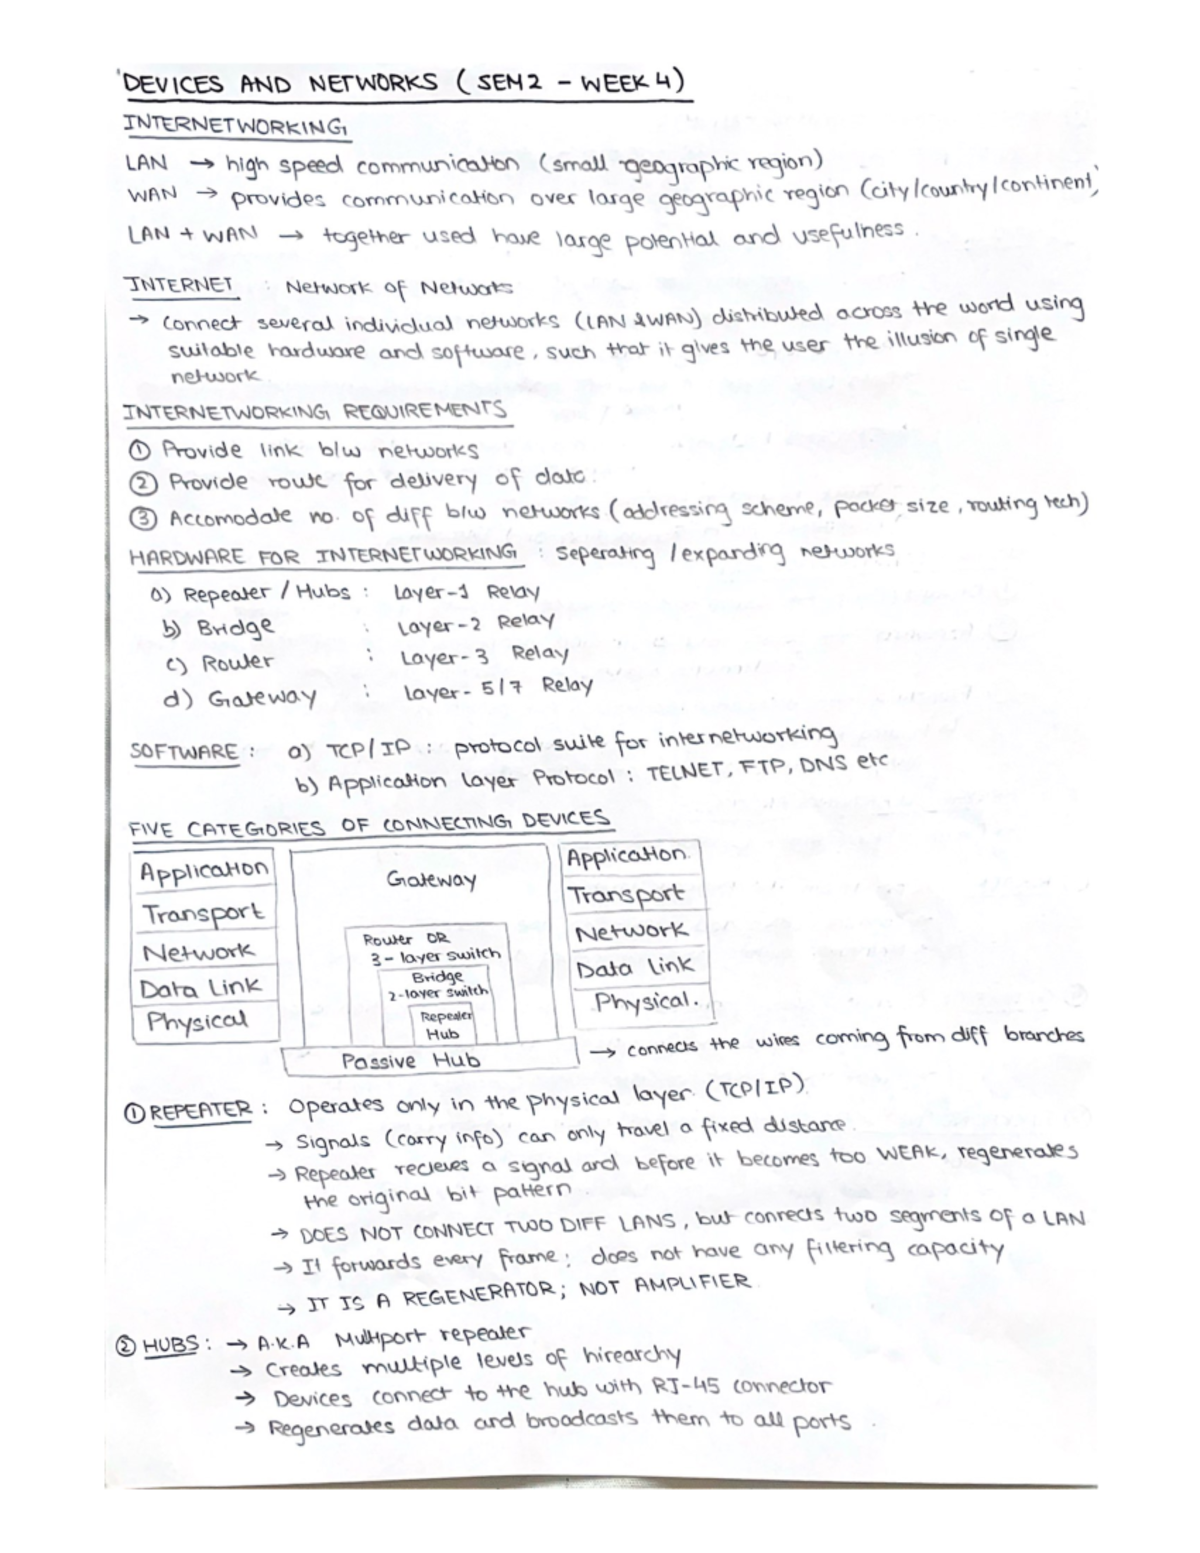 DEVICES AND NETWORKS (SEM 2 - WEEK 4)
INTERNETWORKING
LAN → high speed communication (small geographic region)
WAN → provides communication over large geographic region (city/country/continent)
LAN + WAN → together used have large potential and usefulness.
INTERNET : Network of Networks
→ Connect several individual networks (LAN & WAN) distributed across the word using
suitable hardware and software, such that it gives the user the illusion of single
network.
INTERNETWORKING REQUIREMENTS
① Provide link b/w networks
② Provide route for delivery of data.
③ Accomodate no. of diff b/w networks (addressing scheme, packet size, routing tech)
HARDWARE FOR INTERNETWORKING : seperating / expanding networks
a) Repeater / Hubs : Layer-1 Relay
b) Bridge : Layer-2 Relay
c) Router : Layer-3 Relay
d) Gateway : Layer-5/7 Relay
SOFTWARE : a) TCP/IP : protocol suite for internetworking
b) Application Layer Protocol : TELNET, FTP, DNS etc
FIVE CATEGORIES OF CONNECTING DEVICES
Application
Transport
Network
Data Link
Physical
Gateway
Router OR
3-layer switch
Bridge
2-layer switch
Repeater
Hub
Passive Hub
Application
Transport
Network
Data link
Physical.
→ connects the wires coming from diff branches
① REPEATER : Operates only in the physical layer. (TCP/IP).
→ Signals (carry info) can only travel a fixed distance.
→ Repeater recieves a signal and before it becomes too WEAK, regenerates
the original bit pattern
→ DOES NOT CONNECT TWO DIFF LANS, but connects two segments of a LAN
→ It forwards every frame; does not have any filtering capacity
→ IT IS A REGENERATOR; NOT AMPLIFIER.
② HUBS : → A.K.A Multiport repeater
→ Creates multiple levels of hirearchy
→ Devices connect to the hub with RJ-45 connector
→ Regenerates data and broadcasts them to all ports.